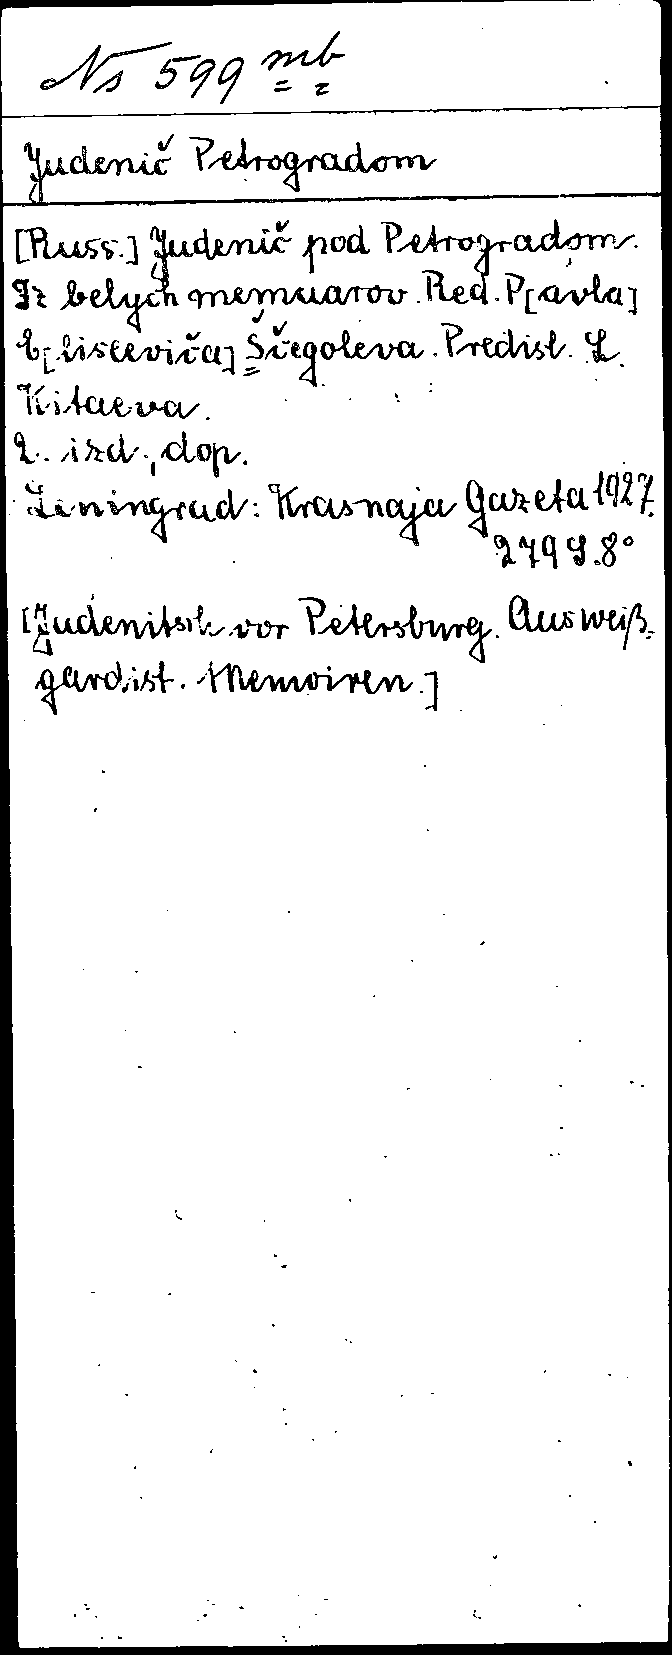 Ns 599 mb
Judenič Petrogradom
[Russ.] Judenič pod Petrogradom.
Iz belych memuarov. Red. P[avla]
E[liseeviča] Ščegoleva. Predisl. L.
Kitaeva.
2. izd., dop.
Leningrad: Krasnaja Gazeta 1927.
279 S. 8°
[Judenitsch vor Petersburg. Aus weiß-
gardist. Memoiren.]